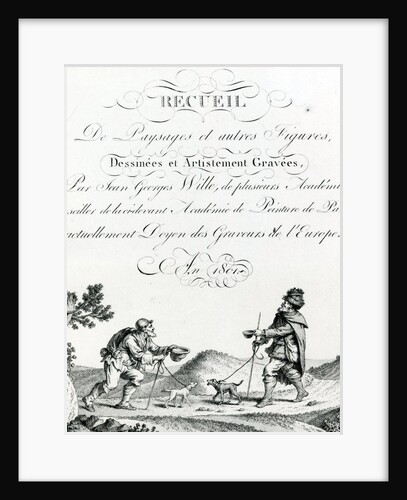 RECUEIL
De Paysages et autres Figures,
Dessinées et Artistement Gravées,
Par Jean Georges Wille, de plusieurs Académi
seiller de la cidevant Académie de Peinture de Pa
actuellement Doyen des Graveurs de l'Europe.
An 1801